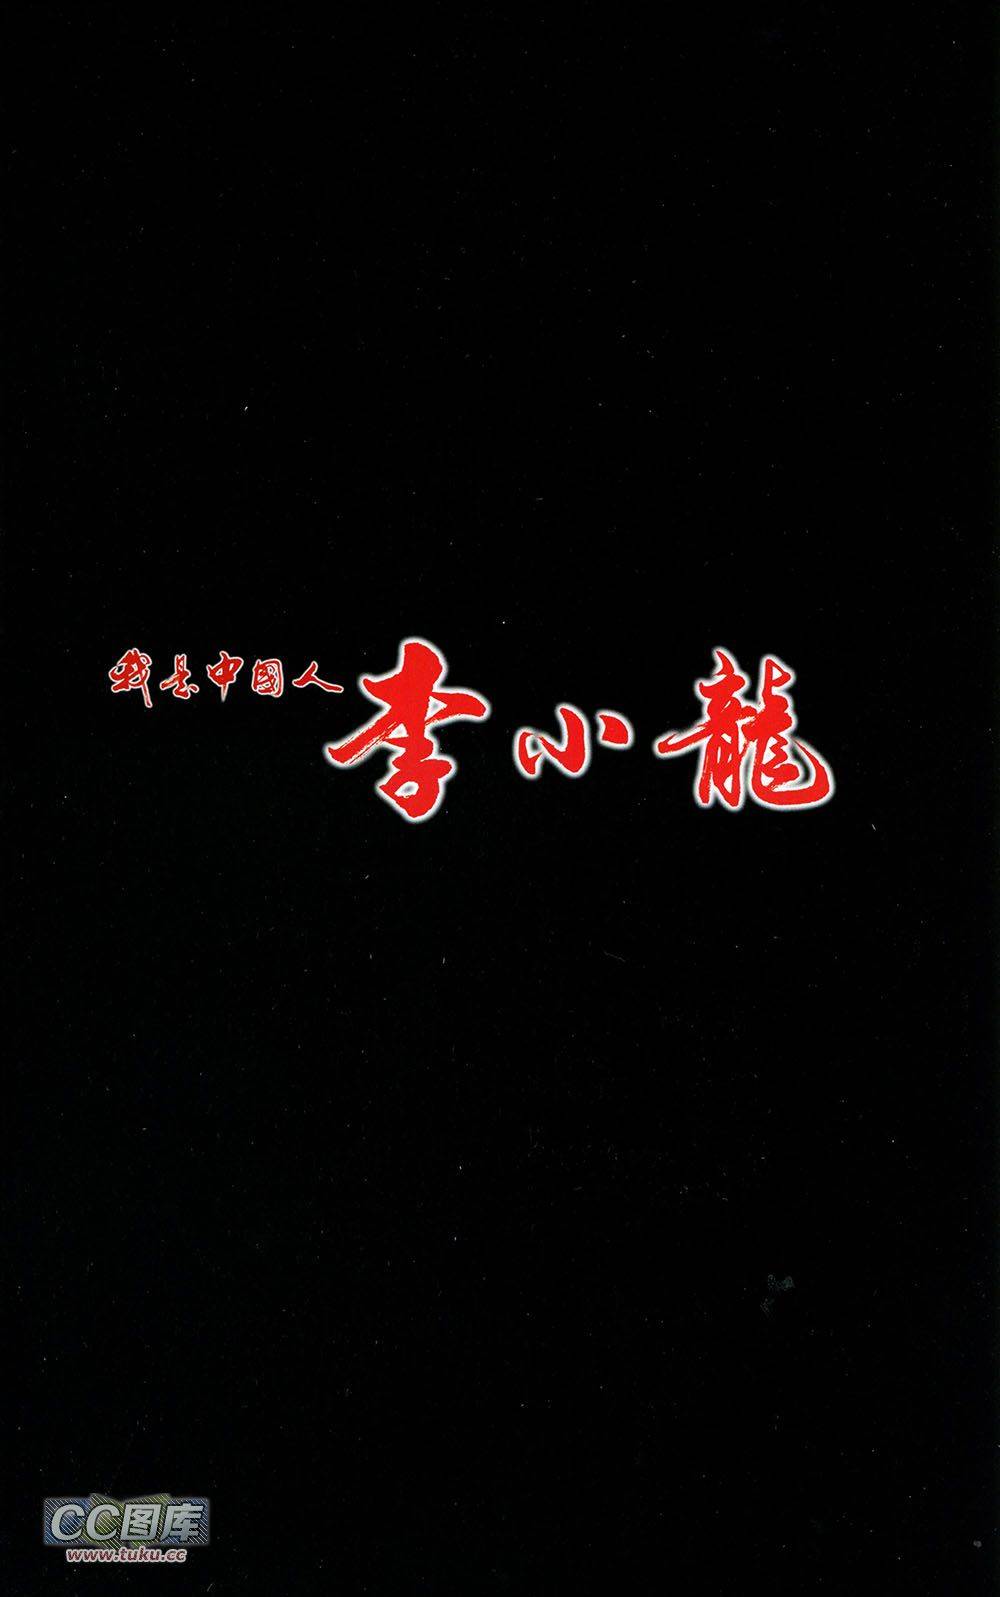 我是中國人
李小龍
CC图库
www.tuku.cc